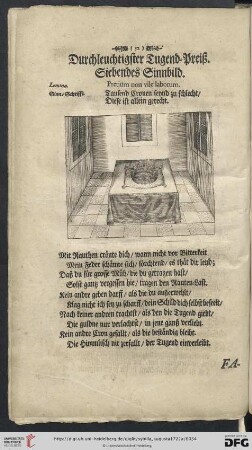 Durchleuchtigster Tugend-Preiß.
Siebendes Sinnbild.
Lemma. Pretium non vile laborum.
Sinn-Schrifft. Tausend Cronen seynd zu schlecht/
Diese ist allein gerecht.
Mit Rauthen crönte dich / wann nicht vor Bitterkeit
Mein Feder schämte sich / förchtend / es thät dir leyd;
Daß du für grosse Müh / die du getragen hast /
Solst gantz vergessen hie / tragen den Rauten-Last.
Kein andre geben darff / als die du außerwöhlt /
Klag nicht ich sey zu scharff / dein Schild dich selbst
Nach keiner andern trachtest / als den die Tugend giebt /
Die guldne nur verlachest / in jene gantz verliebt.
Kein andre Cron gefallt / als die beständig bleibt.
Die Himmlisch nit zerfallt / der Tugend einverleibt.
FA-